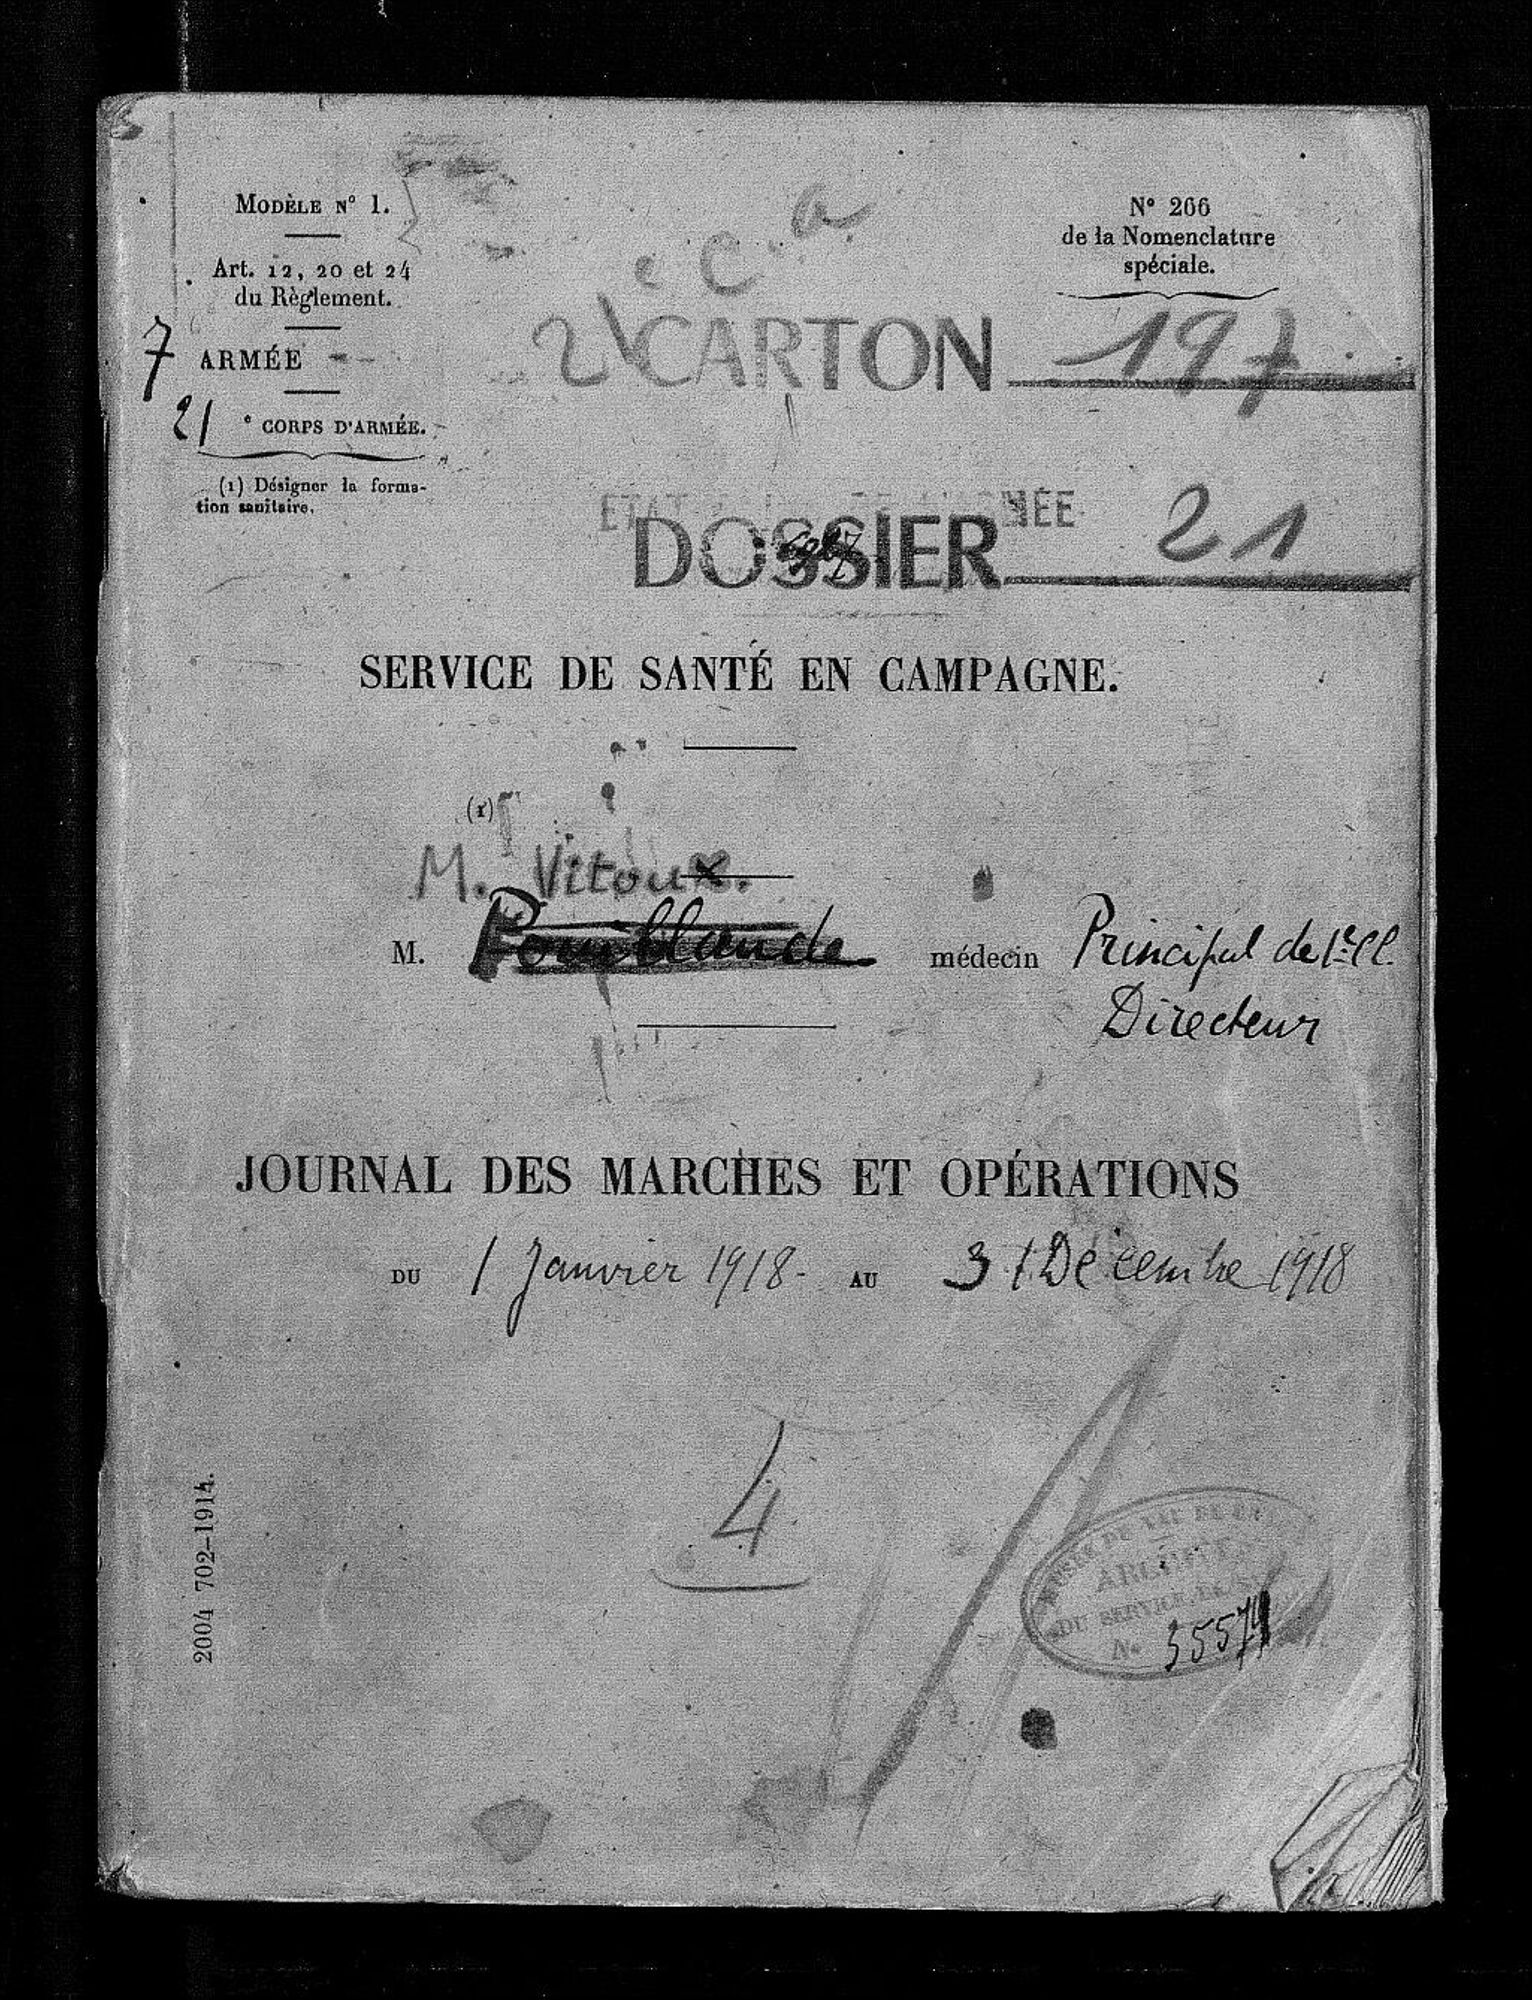 MODÈLE N° 1.
Art. 12, 20 et 24
du Règlement.
7 ARMÉE
21 e CORPS D'ARMÉE.
(1) Désigner la forma-
tion sanitaire.
N° 266
de la Nomenclature
spéciale.
21 e C. a.
CARTON 197
ETAT MÉE
DOSSIER 21
SERVICE DE SANTÉ EN CAMPAGNE.
(1)
M. Vitoux.
M. médecin Principal de 1re Cl.
Directeur
JOURNAL DES MARCHES ET OPÉRATIONS
DU 1 Janvier 1918 - AU 31 Décembre 1918
4
2004 702–1914.
MUSÉE DU VAL DE
ARCHIVES
DU SERVICE DE
N° 35574